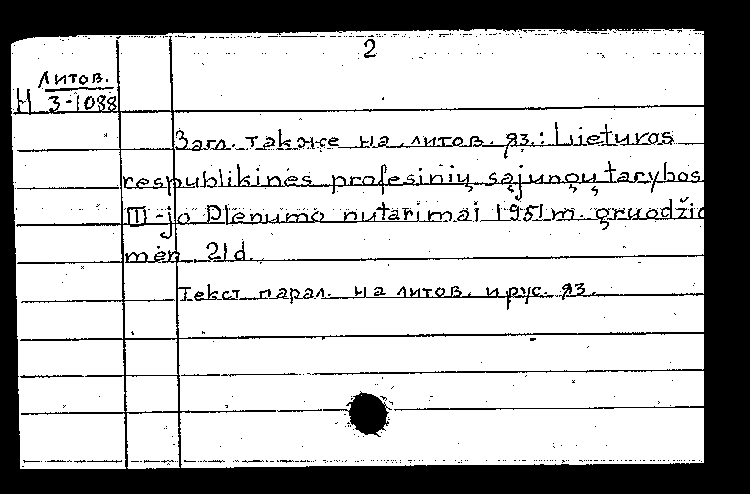 2
Литов.
Н 3-1088
Загл. также на литов. яз.: Lietuvos
respublikinės profesinių sąjungų tarybos
III-jo Plenumo nutarimai 1951 m. gruodžio
mėn. 21 d.
Текст парал. на литов. и рус. яз.